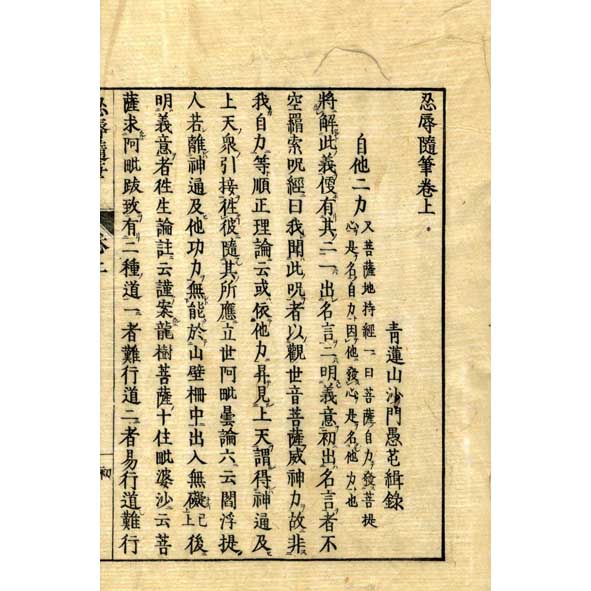 忍辱隨筆卷上
青蓮山沙門愚芚緝錄
自他二力
又菩薩地持經一曰菩薩自力發菩提
心是名自力因他發心是名他力也
將解此義優有其二一出名言二明義意初出名言者不
空羂索呪經曰我聞此呪者以觀世音菩薩威神力故非
我自力等順正理論云或依他力昇見上天謂得神通及
上天衆引接徃彼隨其所應立世阿毗曇論六云閻浮提
人若離神通及他功力無能於山壁柵中出入無礙已上後
明義意者徃生論註云謹案龍樹菩薩十住毗婆沙云菩
薩求阿毗跋致有二種道一者難行道二者易行道難行
忍辱隨筆
卷上
初